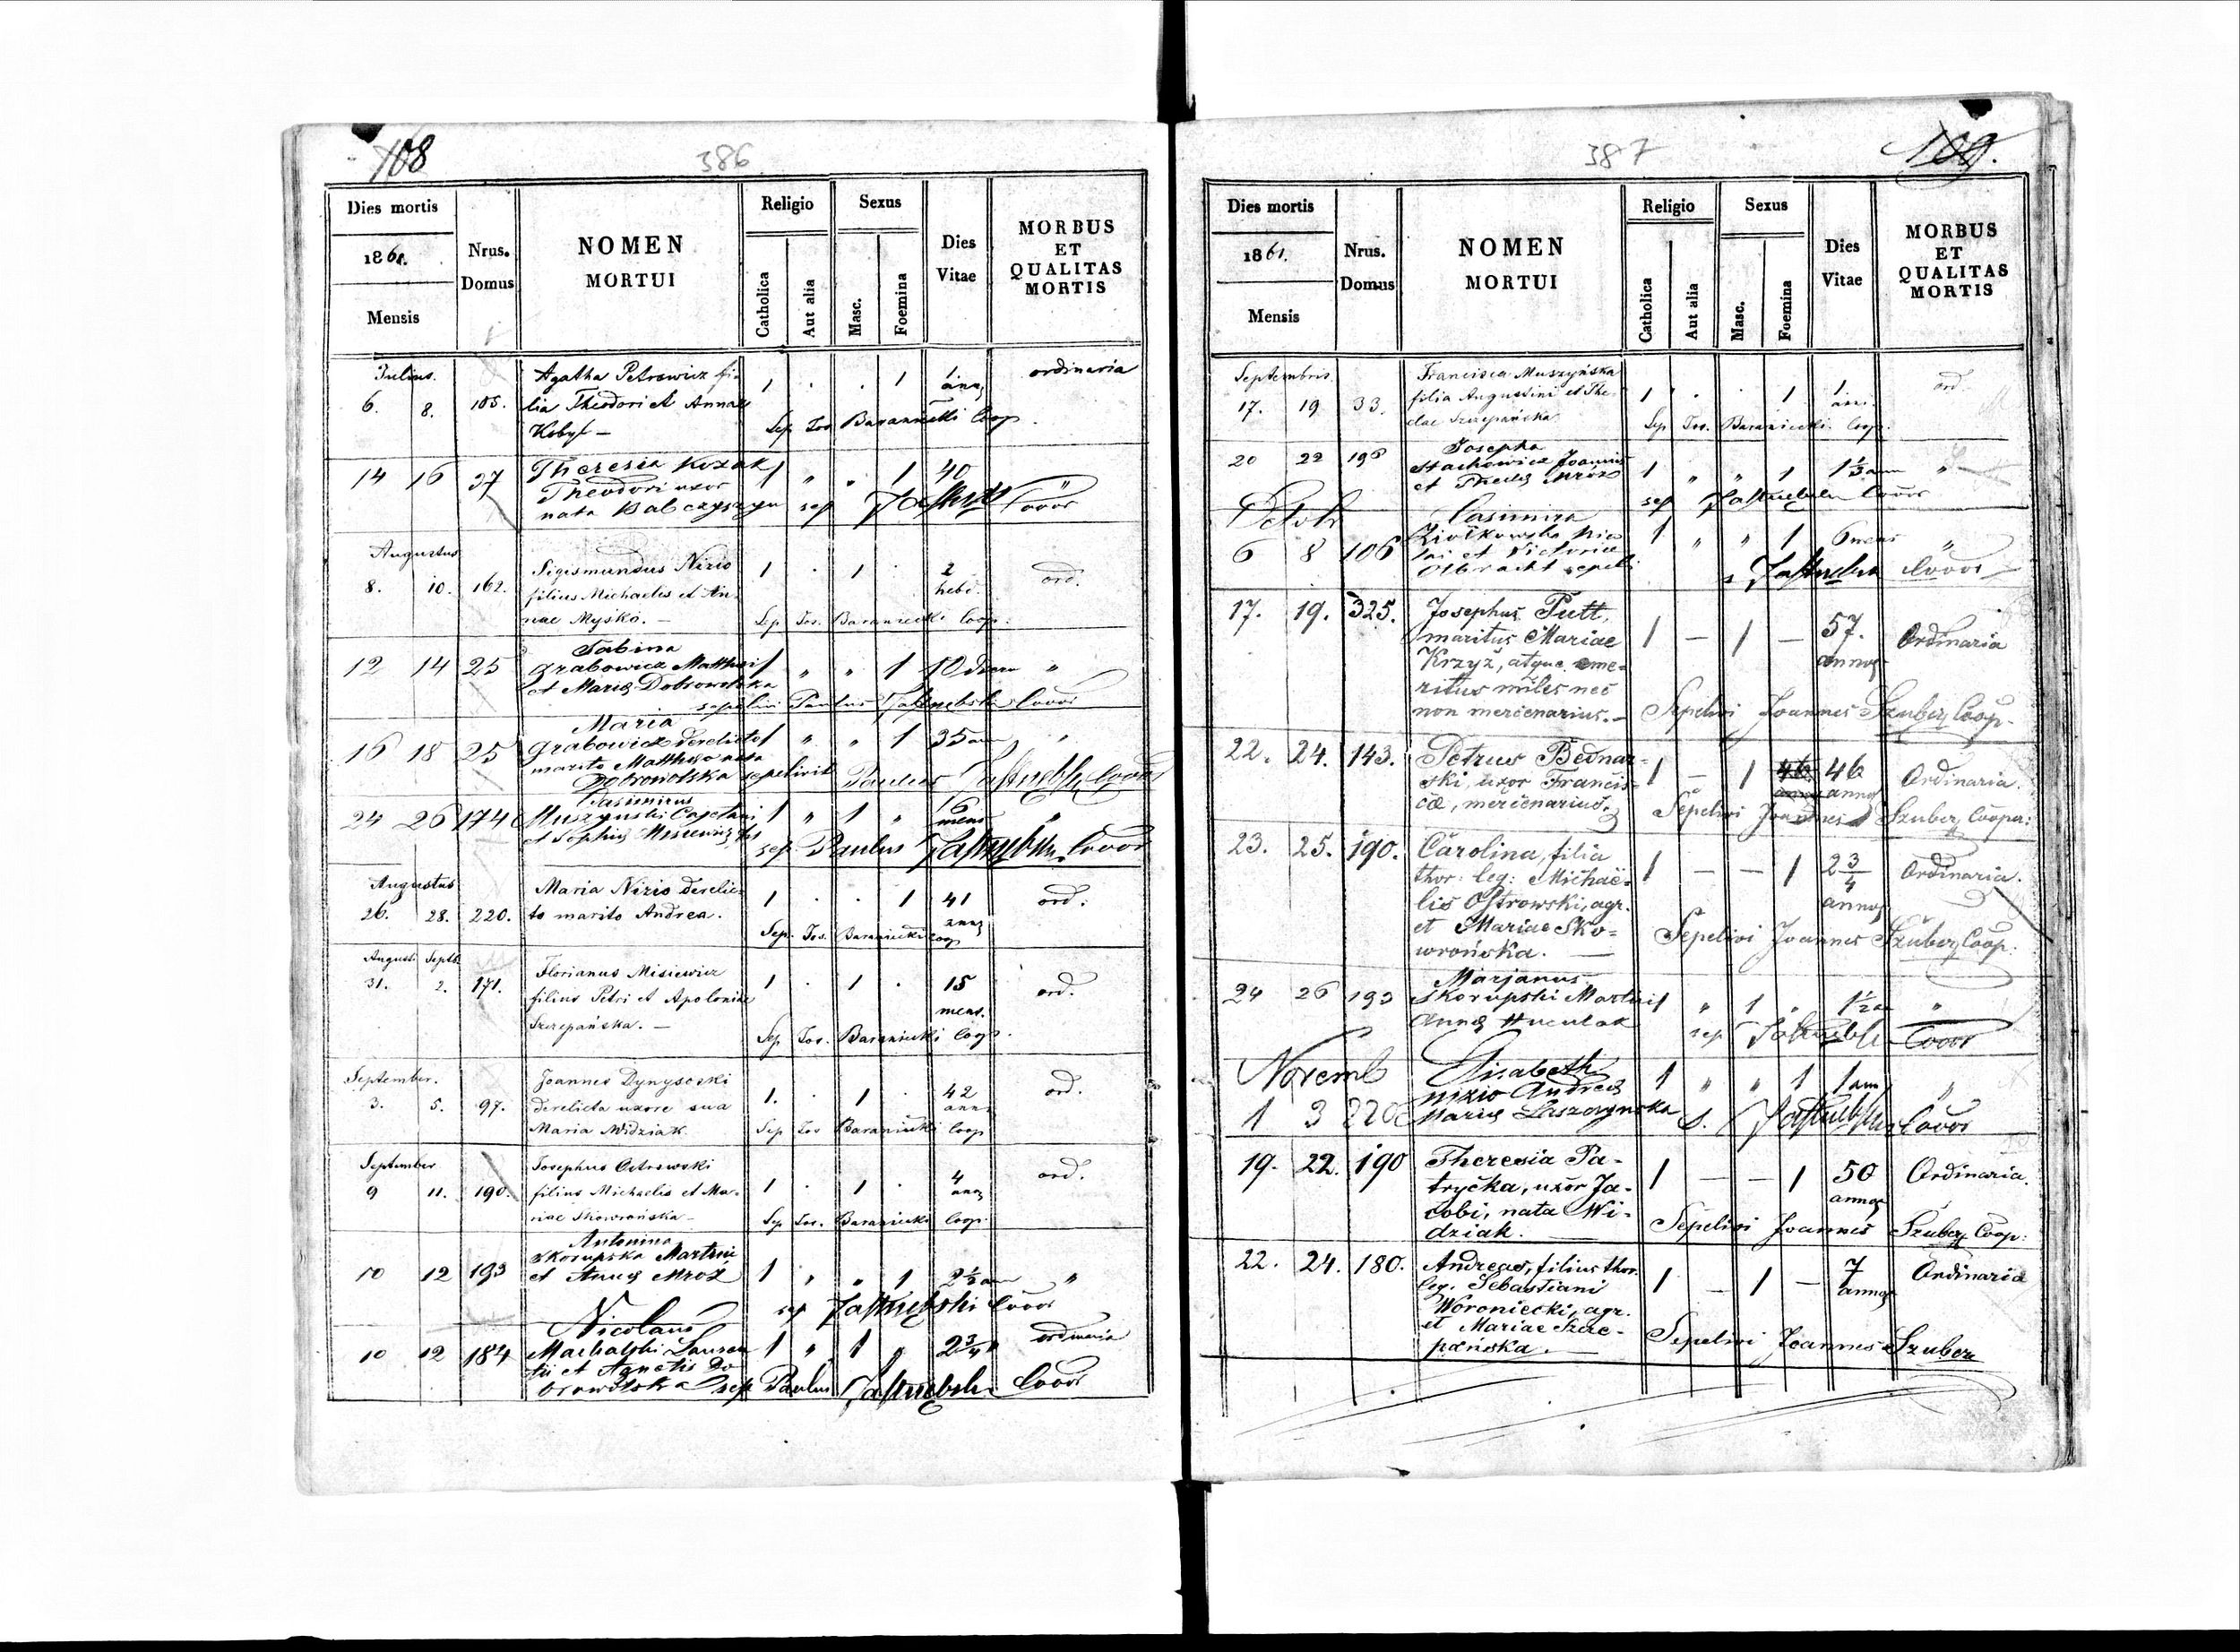 108
386
Dies mortis
1861.
Mensis
Nrus.
Domus
NOMEN
MORTUI
Religio
Catholica
Aut alia
Sexus
Masc.
Foemina
Dies
Vitae
MORBUS
ET
QUALITAS
MORTIS
Julius.
6. 8. 105.
Agatha Petrowicz fi-
lia Theodori et Annae
Kobyl —
1 . . 1 1 ann ordinaria
Sep. Jos. Baraniecki Coop.
14 16 37
Theresia Kozak
Theodori uxor
nata Babczyszyn
1 " " 1 40 "
sep Coor
Augustus
8. 10. 162.
Sigismundus Nizio
filius Michaelis et An-
nae Mysko. —
1 . 1 . 2 hebd. ord.
Sep. Jos. Baraniecki Coop.
12 14 25
Sabina
Grabowicz Matthaei
et Maria Dobrowolska
1 " " 1 10 "
sepelivi Paulus Jastrzebski Coor
16 18 25
Maria
Grabowicz derelicto
marito Mattheo nata
Dobrowolska
1 " " 1 35 ann "
sepelivit Paulus Jastrzebski Coor
24 26 174
Casimirus
Muszynski Cajetani
et Sophia Misiewicz
1 " 1 " 16 mens "
sep Paulus Jastrzebski Coor
Augustus
26. 28. 220.
Maria Nizio derelic-
to marito Andrea.
1 . . 1 41 ann ord.
Sep. Jos. Baraniecki Coop
Augusti Septb.
31. 2. 171.
Florianus Misiewicz
filius Petri et Apoloniae
Szczepańska. —
1 . 1 . 15 mens. ord.
Sep Jos. Baraniecki Coop.
September.
3. 5. 97.
Joannes Dynysoski
derelicta uxore sua
Maria Widziak
1. . 1 . 42 ann ord.
Sep Jos Baraniecki Coop
September
9 11. 190.
Josephus Ostrowski
filius Michaelis et Ma-
riae Skowrońska —
1 . 1 . 4 ann ord.
Sep Jos. Baraniecki Coop.
10 12 193
Antonina
Skorupska Martini
et Anna Mroz
1 " " 1 2½ ann "
sep Jastrzebski Coor
10 12 184
Nicolaus
Machalski Lauren
tii et Agnetis Do
browolska
1 " 1 " 2¾ ordinaria
sep Paulus Jastrzebski Coor
387
109.
Dies mortis
1861.
Mensis
Nrus.
Domus
NOMEN
MORTUI
Religio
Catholica
Aut alia
Sexus
Masc.
Foemina
Dies
Vitae
MORBUS
ET
QUALITAS
MORTIS
Septembris
17. 19 33.
Francisca Muszyńska
filia Augustini et The-
clae Szczepańska
1 . . 1 1 ann. ord.
Sep Jos. Baraniecki Coop.
20 22 198
Josepha
Stachowicz Joannis
et Thecla Mroz
1 " " 1 1½ ann "
sep Jastrzebski Coor
Octob
6 8 106
Casimira
Ziołkowska Nico
lai et Victoria
Olbracht sepeli
1 " " 1 6 mens "
Jastrzebski Coor
17. 19. 325.
Josephus Putt,
maritus Mariae
Krzyż, atque eme-
ritus miles nec
non mercenarius. —
1 — 1 — 57. annos Ordinaria
Sepelivi Joannes Szuber, Coop.
22. 24. 143.
Petrus Bednar-
ski, uxor Francis-
cae, mercenarius.
1 — 1 46 46 annos Ordinaria.
Sepelivi Joannes Szuber, Coopa:
23. 25. 190.
Carolina, filia
thor: leg: Michaë-
lis Ostrowski, agr.
et Mariae Sko-
wrońska. —
1 — — 1 2¾ annos Ordinaria.
Sepelivi Joannes Szuber, Coop.
24 26 193
Marjanus
Skorupski Martini
Anna Huculak
1 " 1 " 1½ a "
sep Coor
Novemb
1 3 220
Elisabeth
Nizio Andrea
Maria Laszczynska
1 " " 1 1 ann "
s. Jastrzebski Coor
19. 22. 190
Theresia Pa-
trycka, uxor Ja-
cobi, nata Wi-
dziak. —
1 — — 1 50 annos Ordinaria.
Sepelivi Joannes Szuber, Coop:
22. 24. 180.
Andreas, filius thor.
leg. Sebastiani
Woroniecki, agr.
et Mariae Szcze-
pańska. —
1 — 1 — 7 annos Ordinaria
Sepelivi Joannes Szuber